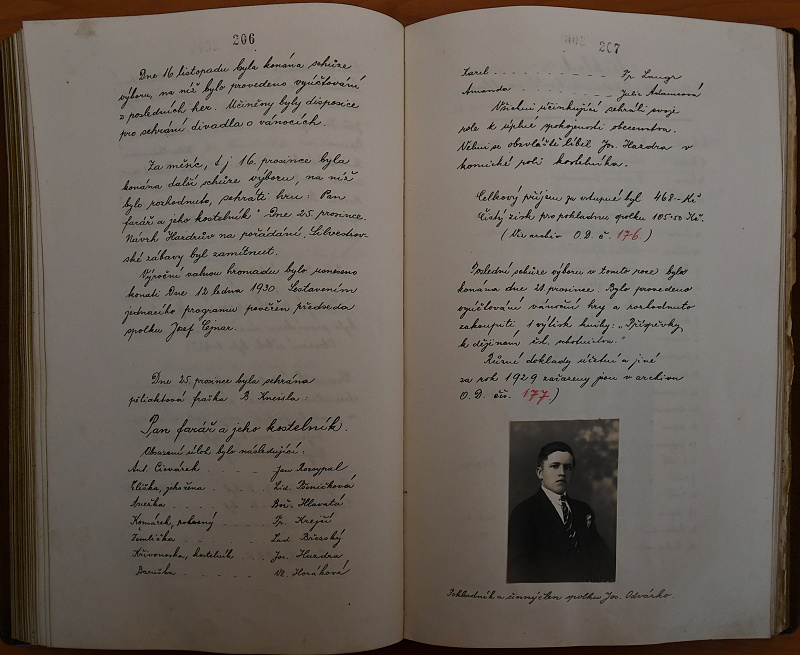 206
Dne 16. listopadu byla konána schůze
výboru, na níž bylo provedeno vyúčtování
z posledních her. Učiněny byly disposice
pro sehrání divadla o vánocích.
Za měsíc, t. j. 16. prosince byla
konána další schůze výboru, na níž
bylo rozhodnuto, sehráti hru: Pan
farář a jeho kostelník" Dne 25. prosince.
Návrh Hazdrův na pořádání Silvestrov-
ské zábavy byl zamítnut.
Výroční valnou hromadu bylo usneseno
konati Dne 12 ledna 1930. Sestavením
jednacího programu pověřen předseda
spolku Josef Cejnar.
Dne 25. prosince byla sehrána
pětiaktová fraška B. Kneisla:
Pan farář a jeho kostelník.
Obsazení úloh bylo následující:
Ant. . . . Jan Rozsypal
Eliška, jeho žena . . . Lid.
Anežka . . . Bož. Hlavatá
Komárek, . . . Fr. Krejčí
Žemlička . . . Lad. Březský
Křivonoska, kostelník . . . Jos. Hazdra
Baruška . . . Vl. Horáková
207
Karel . . . . . . . . . Fr. Laugr
Amanda . . . . . . Julie Adamcová
Všichni účinkující sehráli svoje
role k úplné spokojenosti obecenstva.
Velmi se obzvláště líbil Jos. Hazdra v
komické roli kostelníka.
Celkový příjem ze vstupné byl 468.- Kč
Čistý zisk pro pokladnu spolku 105.50 Kč.
(Viz archiv O. D. č. 176.)
Poslední schůze výboru v tomto roce byla
konána dne 28 prosince. Bylo provedeno
vyúčtování vánoční hry a rozhodnuto
zakoupiti 1 výtisk knihy: „Příspěvky
k dějinám čsl. ochotnictva."
Různé doklady účetní a jiné
za rok 1929 zařazeny jsou v archivu
O. D. čís. 177.)
Pokladník a činný člen spolku Jos. Odvárko.